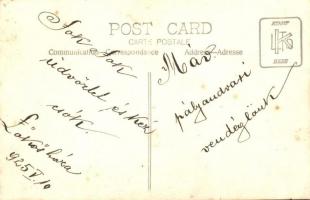 POST CARD
CARTE POSTALE
Communication-Correspondance
Address-Adresse
STAMP
HERE
Sok Sok
üdvözlet és kéz
csók.
Lőkösháza
1925 V/10
Máv
pályaudvari
vendéglőnk